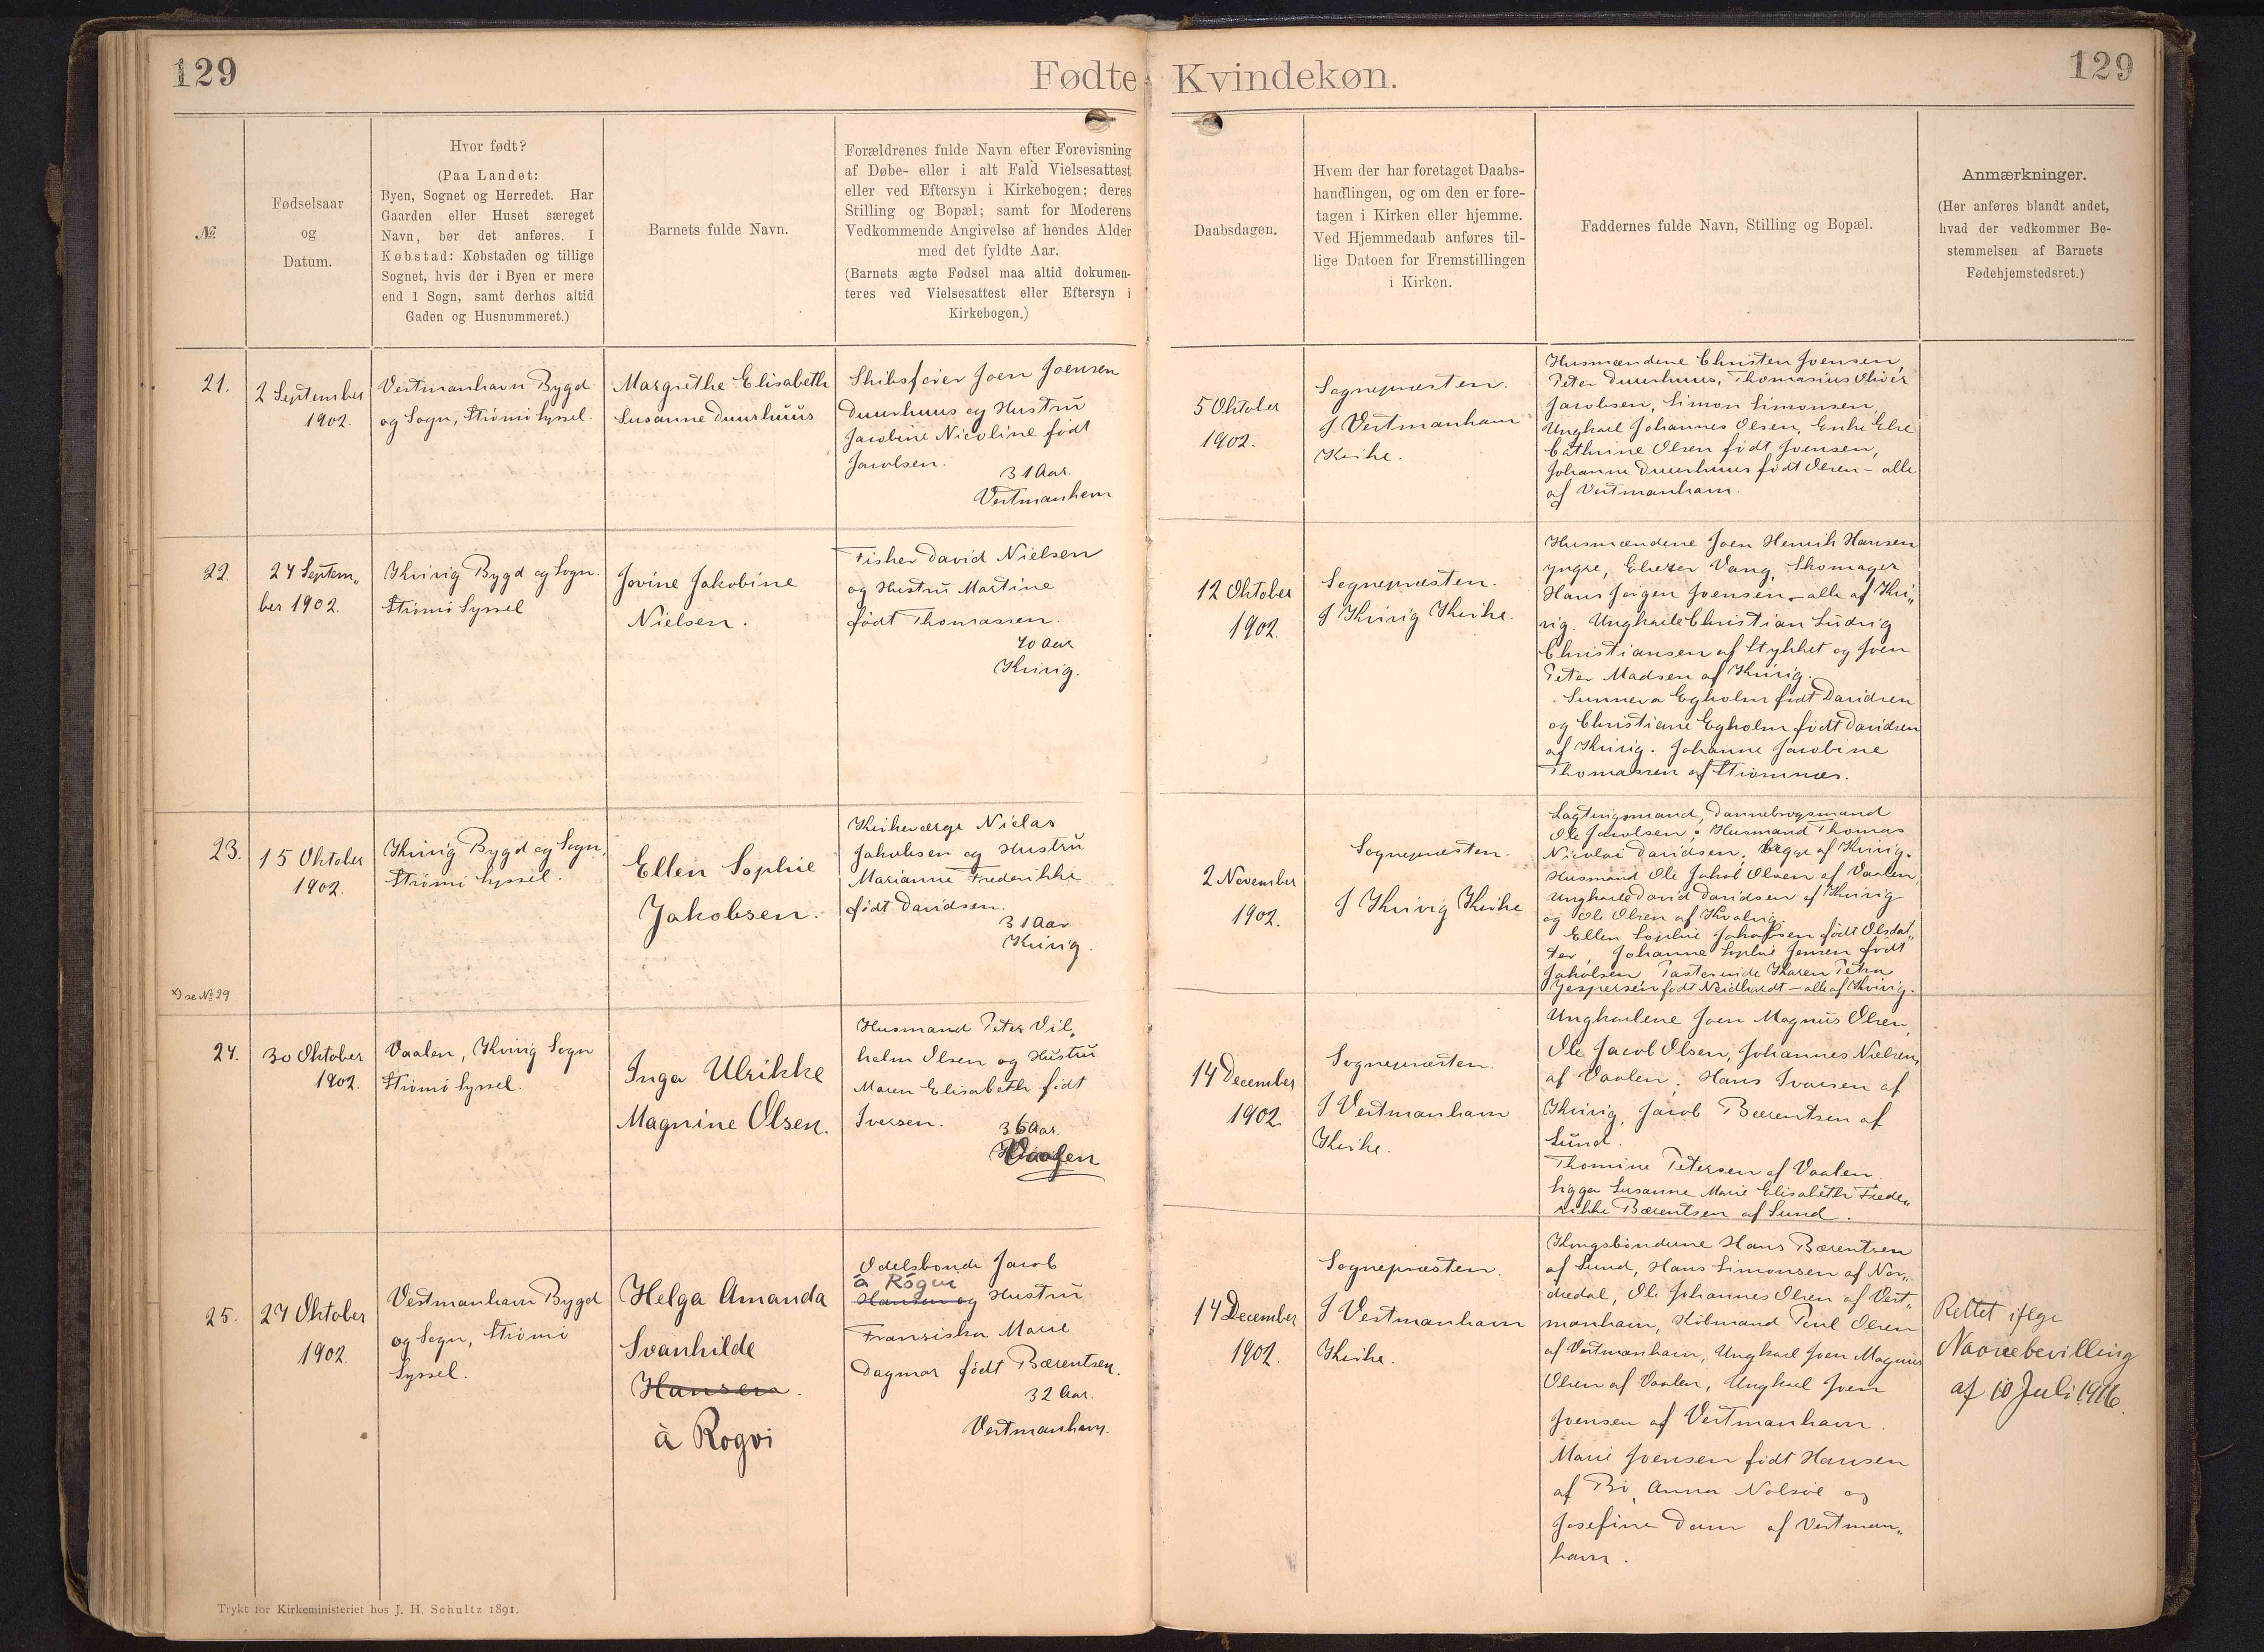 129
Fødte Kvindekøn.
129
№
Fødselsaar
og
Datum.
Hvor født?
(Paa Landet:
Byen, Sognet og Herredet. Har
Gaarden eller Huset særeget
Navn, bør det anføres. I
Købstad: Købstaden og tillige
Sognet, hvis der i Byen er mere
end 1 Sogn, samt derhos altid
Gaden og Husnummeret.)
Barnets fulde Navn.
Forældrenes fulde Navn efter Forevisning
af Døbe- eller i alt Fald Vielsesattest
eller ved Eftersyn i Kirkebogen; deres
Stilling og Bopæl; samt for Moderens
Vedkommende Angivelse af hendes Alder
med det fyldte Aar.
(Barnets ægte Fødsel maa altid dokumen-
teres ved Vielsesattest eller Eftersyn i
Kirkebogen.)
Daabsdagen.
Hvem der har foretaget Daabs-
handlingen, og om den er fore-
tagen i Kirken eller hjemme.
Ved Hjemmedaab anføres til-
lige Datoen for Fremstillingen
i Kirken.
Faddernes fulde Navn, Stilling og Bopæl.
Anmærkninger.
(Her anføres blandt andet,
hvad der vedkommer Be-
stemmelsen af Barnets
Fødehjemstedsret.)
21.
2 September
1902.
Vestmanhavn Bygd
og Sogn, Strömö Syssel.
Margrethe Elisabeth
Susanne Duurhuus
Skibsfører Joen Joensen
Duurhuus og Hustru
Jacobine Nicoline født
Jacobsen.
31 Aar.
Vestmanhavn
5 Oktober
1902.
Sognepræsten.
I Vestmanhavn
Kirke.
Husmændene Christen Joensen,
Peter Duurhuus, Thomasius Oliver
Jacobsen, Simon Simonsen,
Ungkarl Johannes Olsen, Enke Else
Cathrine Olsen født Joensen,
Johanne Duurhuus født Olsen – alle
af Vestmanhavn.
22.
24 Septem„
ber 1902.
Kvivig Bygd og Sogn.
Strömö Syssel
Jovine Jakobine
Nielsen.
Fisker David Nielsen
og Hustru Martine
født Thomassen.
40 Aar
Kvivig.
12 Oktober
1902.
Sognepræsten.
I Kvivig Kirke.
Husmændene Joen Henrik Hansen
yngre, Eliezer Vang, Skomager
Hans Jørgen Joensen – alle af Kvi„
vig. Ungkarle Christian Ludvig
Christiansen af Stykket og Joen
Peter Madsen af Kvivig.
Sunneva Egholm født Davidsen
og Christiane Egholm født Davidsen
af Kvivig. Johanne Jacobine
Thomassen af Strömnæs.
23.
15 Oktober
1902.
Kvivig Bygd og Sogn,
Strömö Syssel.
Ellen Sophie
Jakobsen.
Kirkeværge Niclas
Jakobsen og Hustru
Marianne Frederikke
født Davidsen.
31 Aar
Kvivig.
2 November
1902.
Sognepræsten.
I Kvivig Kirke
Lagtingsmand, Dannebrogsmand
Ole Jacobsen; Husmand Thomas
Nicolai Davidsen, begge af Kvivig.
Husmand Ole Jakob Olsen af Vaalen,
Ungkarle David Davidsen af Kvivig
og Ole Olsen af Kvalvig.
Ellen Sophie Jakobsen født Olsdat„
ter, Johanne Sophie Jensen født
Jakobsen, Pastorinde Karen Petra
Jespersen født Neidhardt – alle af Kvivig.
x) se № 29
24.
30 Oktober
1902.
Vaalen, Kvivig Sogn
Strömö Syssel.
Inga Ulrikke
Magnine Olsen.
Husmand Peter Vil„
helm Olsen og Hustru
Maren Elisabeth født
Iversen.
36 Aar.
Vaalen
14 December
1902.
Sognepræsten.
I Vestmanhavn
Kirke.
Ungkarlene Joen Magnus Olsen,
Ole Jacob Olsen, Johannes Nielsen,
af Vaalen; Hans Ivarsen af
Kvivig, Jacob Bærentsen af
Sund.
Thomine Petersen af Vaalen.
Sigga Susanne Marie Elisabeth Frede„
rikke Bærentsen af Sund.
25.
27 Oktober
1902.
Vestmanhavn Bygd
og Sogn, Strömö
Syssel.
Helga Amanda
Svanhilde
Hansen.
à Rogvi
Odelsbonde Jacob
à Rógvi
Hansen og Hustru
Franziska Marie
Dagmar født Bærentsen.
32 Aar.
Vestmanhavn.
14 December
1902.
Sognepræsten.
I Vestmanhavn
Kirke.
Kongsbönderne Hans Bærentsen
af Sund, Hans Simonsen af Nor„
dredal, Ole Johannes Olsen af Vest„
manhavn, Købmand Poul Olsen
af Vestmanhavn, Ungkarl Joen Magnus
Olsen af Vaalen, Ungkarl Joen
Joensen af Vestmanhavn.
Marie Joensen født Hansen
af Bö, Anna Nolsöe og
Josefine Dam af Vestman„
havn.
Rettet ifølge
Navnebevilling
af 10 Juli 1916.
Trykt for Kirkeministeriet hos J. H. Schultz 1891.